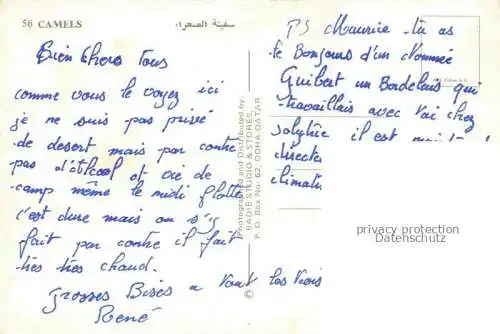 56 CAMELS
سفينة الصحراء
Bien Chers Tous
comme vous le voyez ici
je ne suis pas privé
de desert mais par contre
pas d'alcool et vie de
camp même le midi flotte
c'est dure mais on s'y
fait par contre il fait
très très chaud.
grosses Bises a Vous les Trois
René
Photographed and Distributed by:
BADIE STUDIO & STORES,
P. O. Box No: 62, DOHA-QATAR
PS Maurice tu as
le Bonjour d'un Nommé
Guibert un Bordelais qui
travaillais avec toi chez
il est
directe
climati
privacy protection
Datenschutz